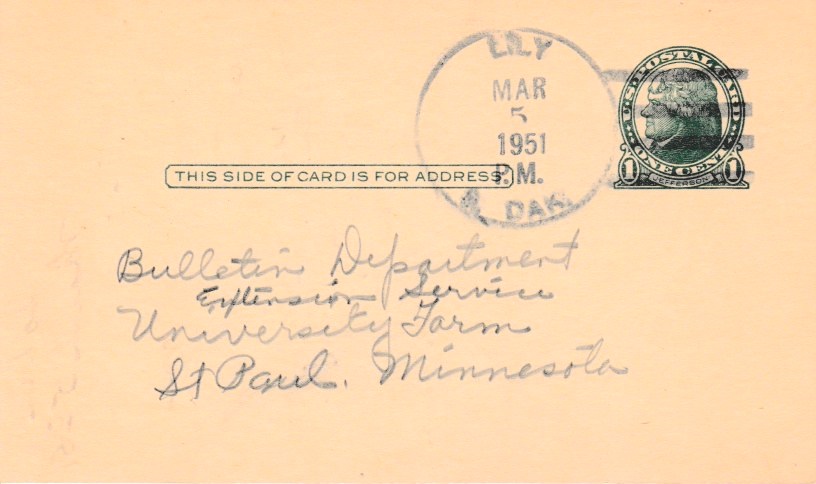 LILY
MAR
5
1951
P.M.
DAK.
U.S. POSTAL CARD
ONE CENT
1 1
JEFFERSON
THIS SIDE OF CARD IS FOR ADDRESS
Bulletin Department
Extension Service
University Farm
St Paul. Minnesota